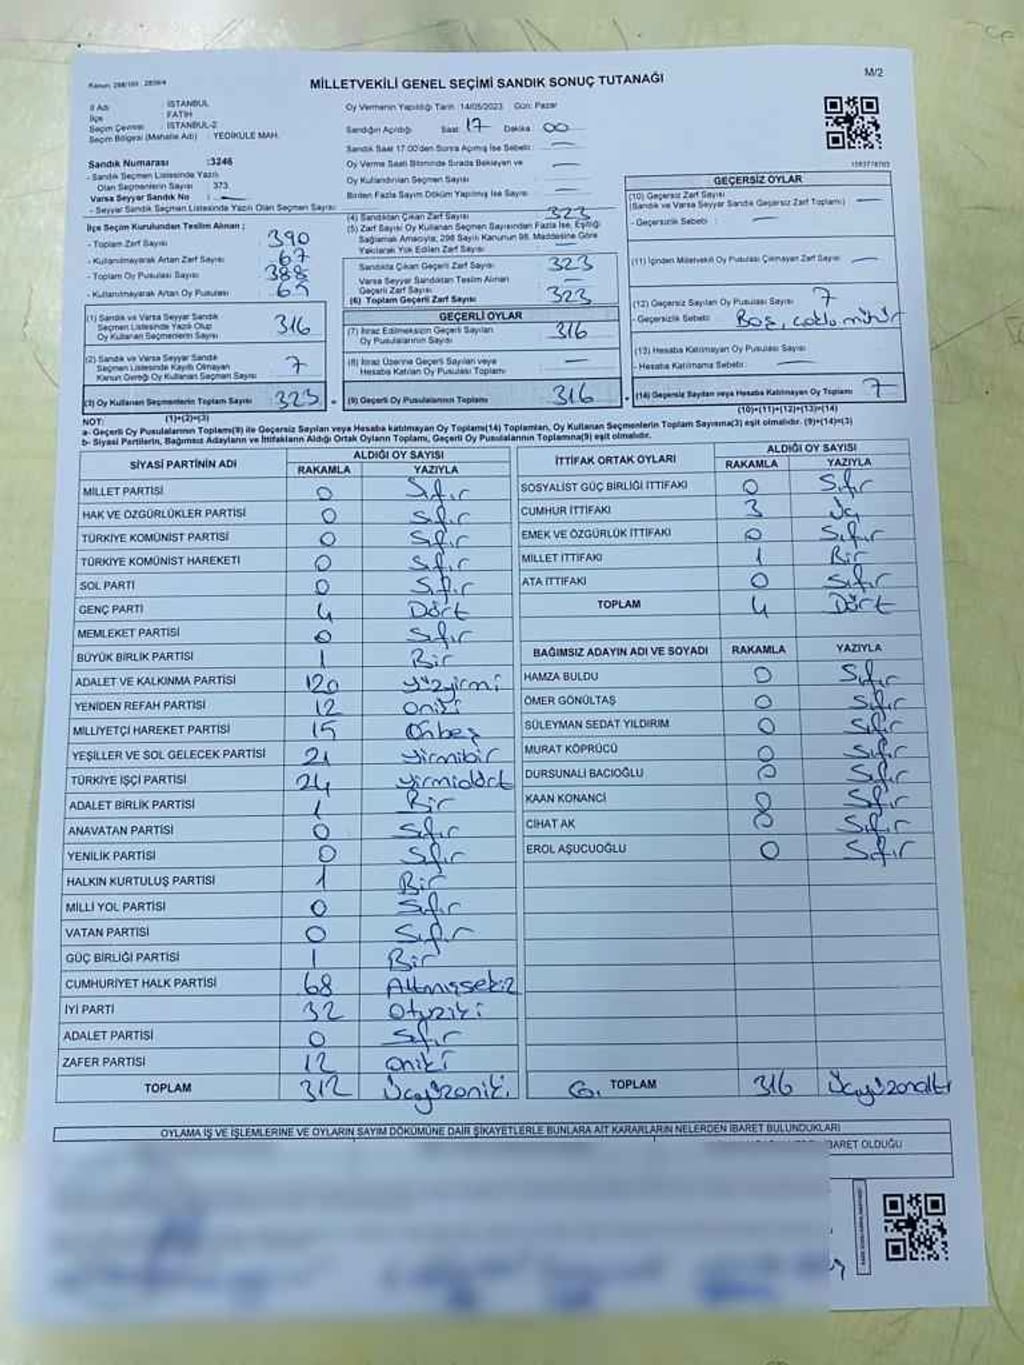 Kanun: 298/105 2839/4
MİLLETVEKİLİ GENEL SEÇİMİ SANDIK SONUÇ TUTANAĞI
M/2
İl Adı : İSTANBUL
İlçe : FATİH
Seçim Çevresi : İSTANBUL-2
Seçim Bölgesi (Mahalle Adı) : YEDİKULE MAH.
Sandık Numarası :3246
- Sandık Seçmen Listesinde Yazılı
Olan Seçmenlerin Sayısı : 373
Varsa Seyyar Sandık No : —
- Seyyar Sandık Seçmen Listesinde Yazılı Olan Seçmen Sayısı:
İlçe Seçim Kurulundan Teslim Alınan ;
- Toplam Zarf Sayısı : 390
- Kullanılmayarak Artan Zarf Sayısı : 67
- Toplam Oy Pusulası Sayısı : 388
- Kullanılmayarak Artan Oy Pusulası : 65
(1) Sandık ve Varsa Seyyar Sandık
Seçmen Listesinde Yazılı Olup
Oy Kullanan Seçmenlerin Sayısı : 316
(2) Sandık ve Varsa Seyyar Sandık
Seçmen Listesinde Kayıtlı Olmayan
Kanun Gereği Oy Kullanan Seçmen Sayısı : 7
(3) Oy Kullanan Seçmenlerin Toplam Sayısı : 323
(1)+(2)=(3)
Oy Vermenin Yapıldığı Tarih: 14/05/2023 Gün: Pazar
Sandığın Açıldığı Saat: 17 Dakika: 00
Sandık Saat 17.00'den Sonra Açılmış İse Sebebi : —
Oy Verme Saati Bitiminde Sırada Bekleyen ve
Oy Kullandırılan Seçmen Sayısı : —
Birden Fazla Sayım Döküm Yapılmış İse Sayısı : —
(4) Sandıktan Çıkan Zarf Sayısı : 323
(5) Zarf Sayısı Oy Kullanan Seçmen Sayısından Fazla İse, Eşitliği
Sağlamak Amacıyla, 298 Sayılı Kanunun 98. Maddesine Göre
Yakılarak Yok Edilen Zarf Sayısı : —
Sandıkta Çıkan Geçerli Zarf Sayısı : 323
Varsa Seyyar Sandıktan Teslim Alınan
Geçerli Zarf Sayısı : —
(6) Toplam Geçerli Zarf Sayısı : 323
GEÇERLİ OYLAR
(7) İtiraz Edilmeksizin Geçerli Sayılan
Oy Pusulalarının Sayısı : 316
(8) İtiraz Üzerine Geçerli Sayılan veya
Hesaba Katılan Oy Pusulası Toplamı : —
(9) Geçerli Oy Pusulalarının Toplamı : 316
GEÇERSİZ OYLAR
(10) Geçersiz Zarf Sayısı
(Sandık ve Varsa Seyyar Sandık Geçersiz Zarf Toplamı) : —
- Geçersizlik Sebebi : —
(11) İçinden Milletvekili Oy Pusulası Çıkmayan Zarf Sayısı : —
(12) Geçersiz Sayılan Oy Pusulası Sayısı : 7
- Geçersizlik Sebebi : Boş, çoklu mühür
(13) Hesaba Katılmayan Oy Pusulası Sayısı : —
- Hesaba Katılmama Sebebi : —
(14) Geçersiz Sayılan veya Hesaba Katılmayan Oy Toplamı : 7
(10)+(11)+(12)+(13)=(14)
NOT:
a- Geçerli Oy Pusulalarının Toplamı(9) ile Geçersiz Sayılan veya Hesaba katılmayan Oy Toplamı(14) Toplamları, Oy Kullanan Seçmenlerin Toplam Sayısına(3) eşit olmalıdır. (9)+(14)=(3)
b- Siyasi Partilerin, Bağımsız Adayların ve İttifakların Aldığı Ortak Oyların Toplamı, Geçerli Oy Pusulalarının Toplamına(9) eşit olmalıdır.
SİYASİ PARTİNİN ADI ALDIĞI OY SAYISI
RAKAMLA YAZIYLA
MİLLET PARTİSİ 0 Sıfır
HAK VE ÖZGÜRLÜKLER PARTİSİ 0 Sıfır
TÜRKİYE KOMÜNİST PARTİSİ 0 Sıfır
TÜRKİYE KOMÜNİST HAREKETİ 0 Sıfır
SOL PARTİ 0 Sıfır
GENÇ PARTİ 4 Dört
MEMLEKET PARTİSİ 0 Sıfır
BÜYÜK BİRLİK PARTİSİ 1 Bir
ADALET VE KALKINMA PARTİSİ 120 Yüzyirmi
YENİDEN REFAH PARTİSİ 12 Oniki
MİLLİYETÇİ HAREKET PARTİSİ 15 Onbeş
YEŞİLLER VE SOL GELECEK PARTİSİ 21 Yirmibir
TÜRKİYE İŞÇİ PARTİSİ 24 Yirmidört
ADALET BİRLİK PARTİSİ 1 Bir
ANAVATAN PARTİSİ 0 Sıfır
YENİLİK PARTİSİ 0 Sıfır
HALKIN KURTULUŞ PARTİSİ 1 Bir
MİLLİ YOL PARTİSİ 0 Sıfır
VATAN PARTİSİ 0 Sıfır
GÜÇ BİRLİĞİ PARTİSİ 1 Bir
CUMHURİYET HALK PARTİSİ 68 Altmışsekiz
İYİ PARTİ 32 Otuziki
ADALET PARTİSİ 0 Sıfır
ZAFER PARTİSİ 12 Oniki
TOPLAM 312 Üçyüzoniki
İTTİFAK ORTAK OYLARI ALDIĞI OY SAYISI
RAKAMLA YAZIYLA
SOSYALİST GÜÇ BİRLİĞİ İTTİFAKI 0 Sıfır
CUMHUR İTTİFAKI 3 Üç
EMEK VE ÖZGÜRLÜK İTTİFAKI 0 Sıfır
MİLLET İTTİFAKI 1 Bir
ATA İTTİFAKI 0 Sıfır
TOPLAM 4 Dört
BAĞIMSIZ ADAYIN ADI VE SOYADI RAKAMLA YAZIYLA
HAMZA BULDU 0 Sıfır
ÖMER GÖNÜLTAŞ 0 Sıfır
SÜLEYMAN SEDAT YILDIRIM 0 Sıfır
MURAT KÖPRÜCÜ 0 Sıfır
DURSUNALİ BACIOĞLU 0 Sıfır
KAAN KONANCİ 0 Sıfır
CİHAT AK 0 Sıfır
EROL AŞUCUOĞLU 0 Sıfır
G. TOPLAM 316 Üçyüzonaltı
OYLAMA İŞ VE İŞLEMLERİNE VE OYLARIN SAYIM DÖKÜMÜNE DAİR ŞİKAYETLERLE BUNLARA AİT KARARLARIN NELERDEN İBARET BULUNDUKLARI
İBARET OLDUĞU